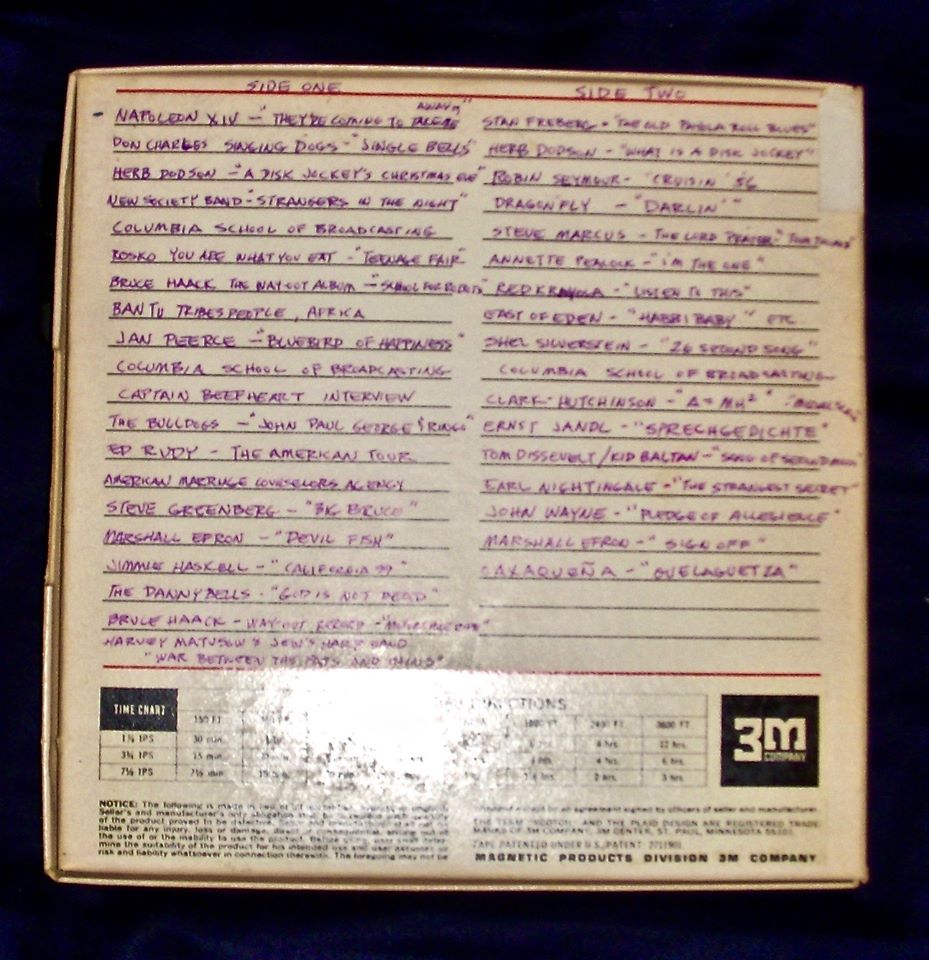 SIDE ONE
NAPOLEON XIV - "THEY'RE COMING TO TAKE ME AWAY"
DON CHARLES SINGING DOGS - "JINGLE BELLS"
HERB DODSON - "A DISK JOCKEY'S CHRISTMAS EVE"
NEW SOCIETY BAND - "STRANGERS IN THE NIGHT"
COLUMBIA SCHOOL OF BROADCASTING
ROSKO YOU ARE WHAT YOU EAT - "TEENAGE FAIR"
BRUCE HAACK THE WAY OUT ALBUM - "SCHOOL FOR ROBOTS"
BANTU TRIBESPEOPLE, AFRICA
JAN PEERCE - "BLUEBIRD OF HAPPINESS"
COLUMBIA SCHOOL OF BROADCASTING
CAPTAIN BEEFHEART INTERVIEW
THE BULLDOGS - "JOHN PAUL GEORGE & RINGO"
ED RUDY - THE AMERICAN TOUR
AMERICAN MARRIAGE COUNSELORS AGENCY
STEVE GREENBERG - "BIG BRUCE"
MARSHALL EFRON - "DEVIL FISH"
JIMMIE HASKELL - "CALIFORNIA 99"
THE DANNYBELLS - "GOD IS NOT DEAD"
BRUCE HAACK - WAY OUT RECORD -
HARVEY MATUSOW'S JEW'S HARP BAND
"WAR BETWEEN THE FATS AND THINS"
SIDE TWO
STAN FREBERG - "THE OLD PAYOLA ROLL BLUES"
HERB DODSON - "WHAT IS A DISK JOCKEY"
ROBIN SEYMOUR - "CRUISIN' 56
DRAGONFLY - "DARLIN'"
STEVE MARCUS - THE LORD PRAYER -
ANNETTE PEACOCK - "I'M THE ONE"
RED KRAYOLA - "LISTEN TO THIS"
EAST OF EDEN - "HABBIBABY" ETC
SHEL SILVERSTEIN - "26 SECOND SONG"
COLUMBIA SCHOOL OF BROADCASTING
CLARK-HUTCHINSON - "A = MH²"
ERNST JANDL - "SPRECHGEDICHTE"
TOM DISSEVELT/KID BALTAN - "SONG OF SECOND MOON"
EARL NIGHTINGALE - "THE STRANGEST SECRET"
JOHN WAYNE - "PLEDGE OF ALLEGIENCE"
MARSHALL EFRON - "SIGN OFF"
OAXAQUEÑA - "GUELAGUETZA"
TIME CHART
150 FT 1800 FT 2400 FT 3600 FT
1⅞ IPS 30 min. 4 hrs. 12 hrs.
3¾ IPS 15 min. 4 hrs. 6 hrs.
7½ IPS 7½ min 2 hrs. 3 hrs.
3M
COMPANY
NOTICE: The following is made in
Seller's and manufacturer's only obligation
of the product proved to be defective.
liable for any injury, loss or damage, direct or consequential, arising out of
the use of or the inability to use the product. Before using, user shall deter-
mine the suitability of the product for his intended use and user assumes all
risk and liability whatsoever in connection therewith. The foregoing may not be
changed except by an agreement signed by officers of seller and manufacturer.
THE TERM "SCOTCH" AND THE PLAID DESIGN ARE REGISTERED TRADE
MARKS OF 3M COMPANY, 3M CENTER, ST. PAUL, MINNESOTA 55101
TAPE PATENTED UNDER U.S. PATENT 2711901
MAGNETIC PRODUCTS DIVISION 3M COMPANY